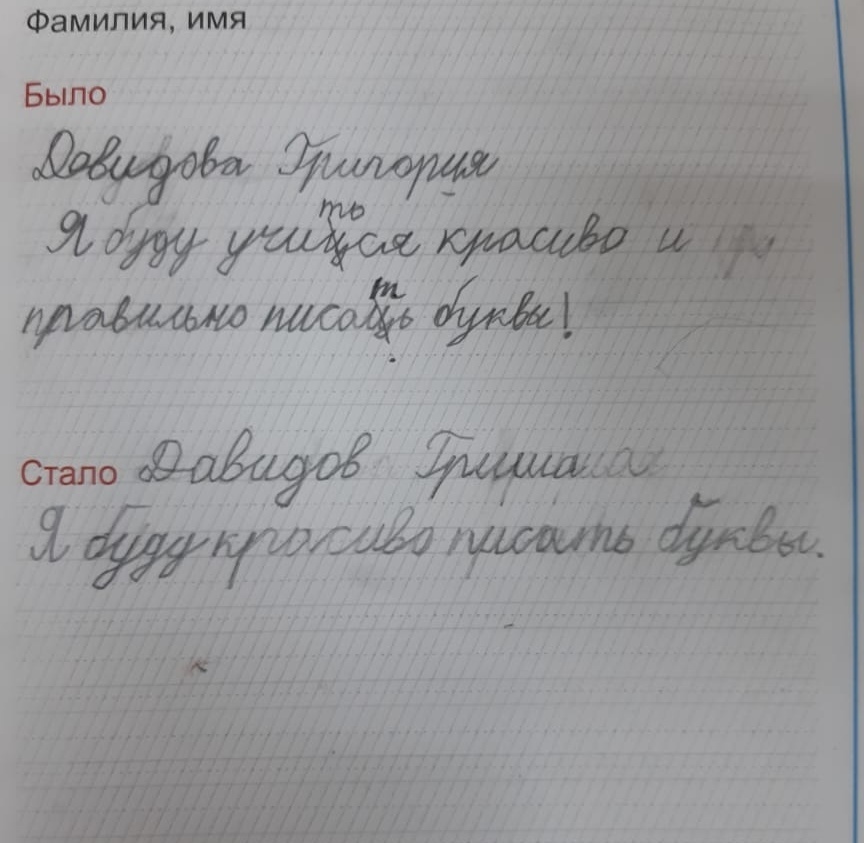 Фамилия, имя
Было
Давидова Григория
Я буду учиться красиво и
правильно писать буквы!
Стало Давидов Гриша
Я буду красиво писать буквы.